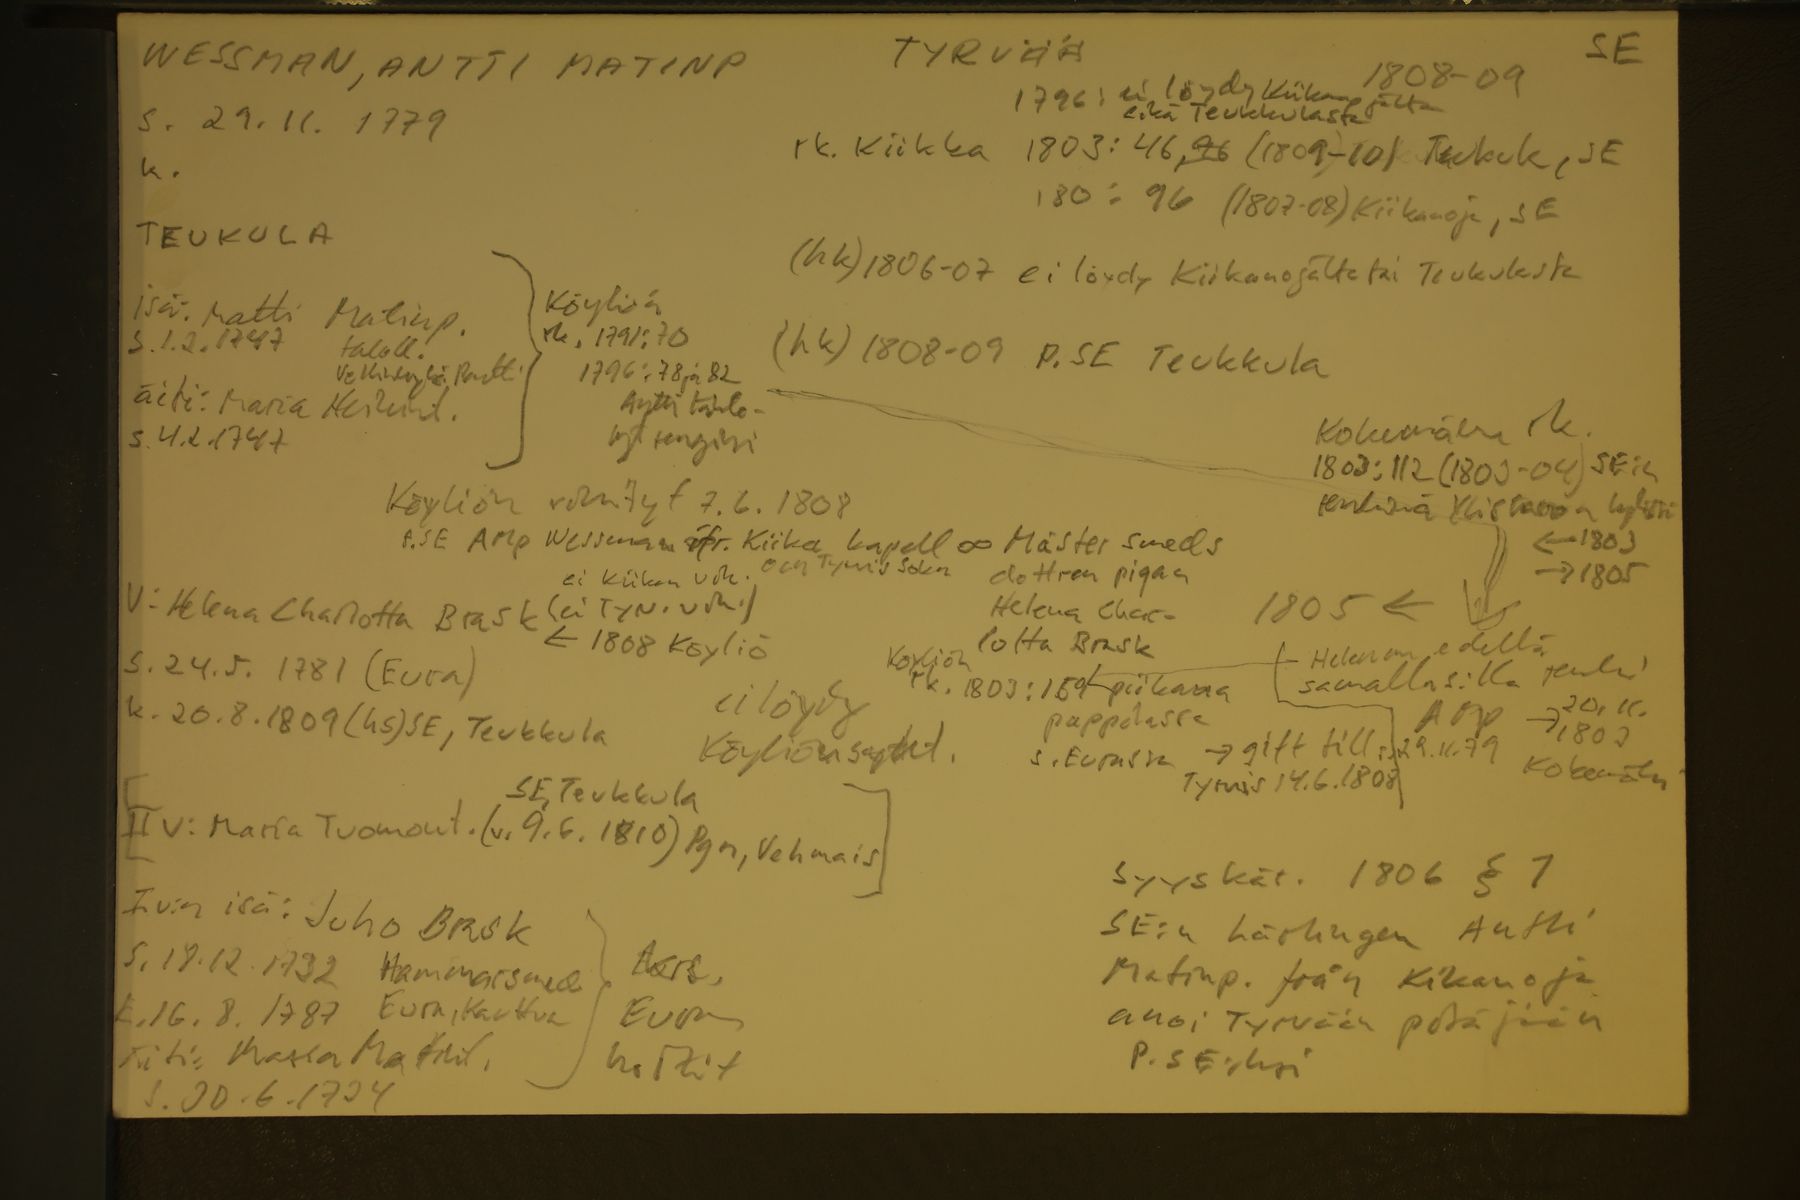 WESSMAN, ANTTI MATINP
TYRVÄÄ
SE
1808-09
s. 29.11. 1779
k.
1796: ei löydy Kiikanojalta
eikä Teukkulasta
rk. Kiikka 1803: 46, 96 (1809-10) Teukuk, SE
180 : 96 (1807-08) Kiikanoja, SE
TEUKULA
(hk) 1806-07 ei löydy Kiikanojalta tai Teukulasta
isä: Matti Matinp.
s. 1.2.1747 taloll.
äiti: Maria Heikint.
s. 4.2.1747
Köyliön
rk. 1791: 70
1796: 78 ja 82
Antti
(hk) 1808-09 P.SE Teukkula
Kokemäen rk.
1803: 112 (1803-04) SE:n
renkinä Ylistaron kylässä
← 1803
→ 1805
Köyliön vihityt 7.6. 1808
P.SE AMp Wessman fr. Kiika kapell ∞ Mäster smeds
och Tyrvis Sokn
dottren pigan
Helena Char-
lotta Brask
ei Kiikan vih.
(ei Tyrv. vih.)
← 1808 Köyliö
V: Helena Charlotta Brask
s. 24.5. 1781 (Eura)
k. 20.8.1809 (hs) SE, Teukkula
ei löydy
Köyliön
Köyliön
rk. 1803: 159 piikana
pappilassa
s. Eurassa → gift till
Tyrvis 14.6.1808
1805 ←
Helenan edellä
samalla sivulla renki
AMp
s. 29.11.79
→ 20.11.
1803
Kokemäki
SE, Teukkula
II V: Maria Tuomont. (v. 9.6. 1810) Pgn, Vehmais
I v:n isä: Juho Brask
s. 18.12.1732 Hammarsmed
k. 16.8. 1787 Eura, Kauttua
äiti: Maria Matint.
s. 30.6.1734
Euran
Syyskär. 1806 § 7
SE:n lärlingen Antti
Matinp. från Kikanoja
anoi Tyrvään pitäjään
P.SE:ksi